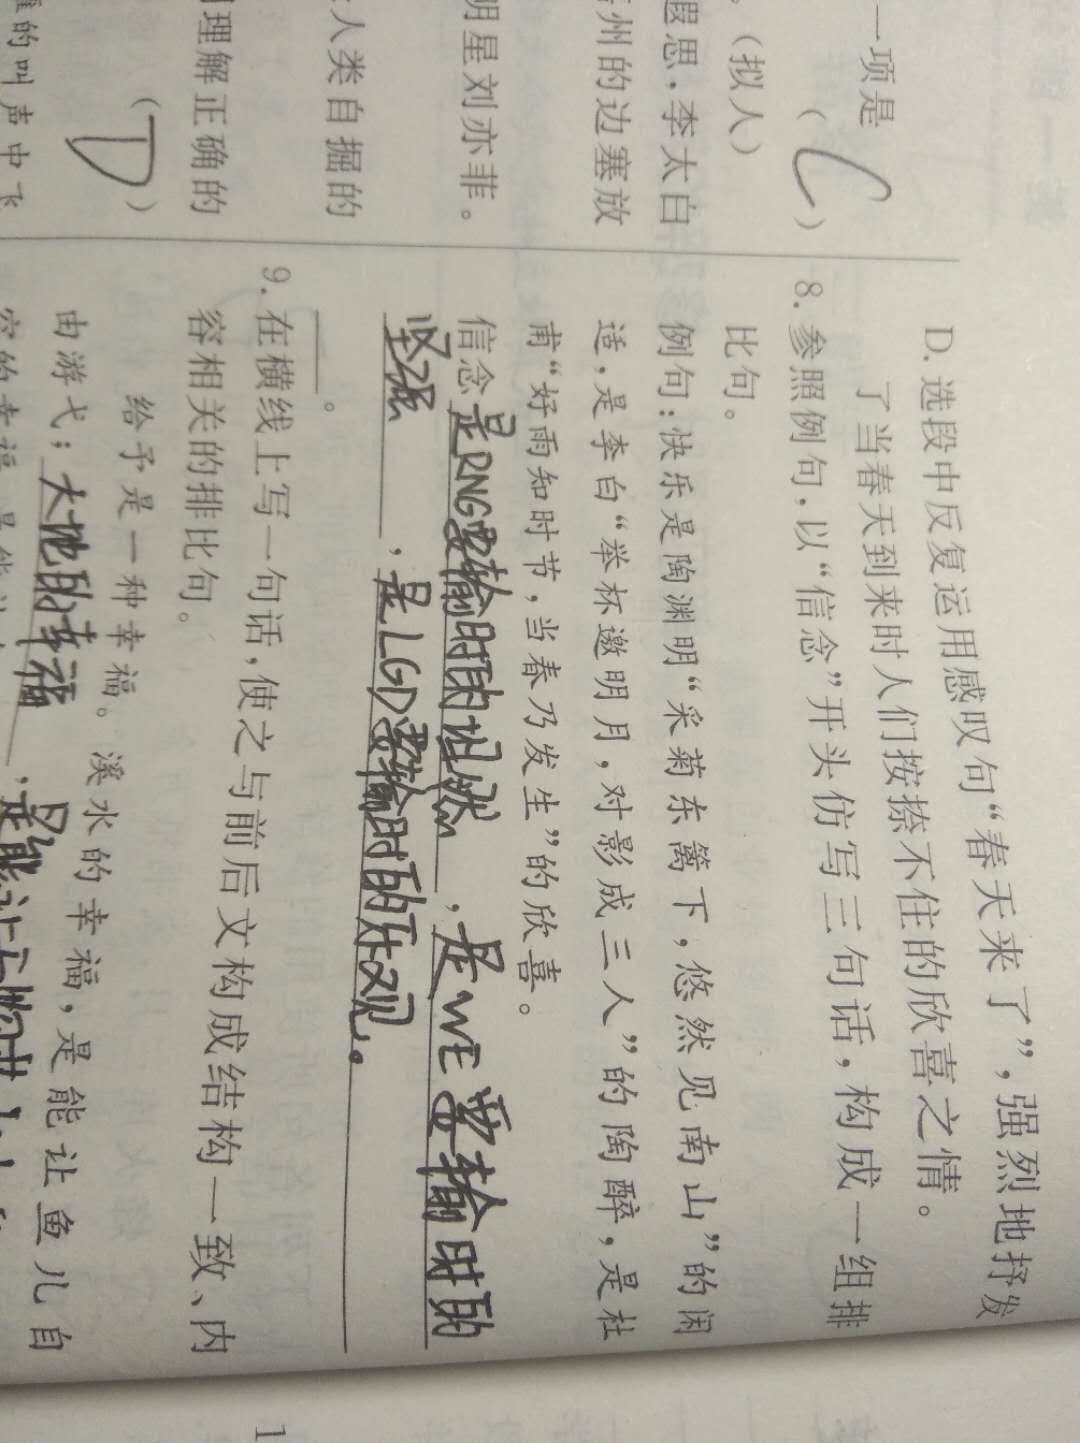 一项是
( C )
。(拟人)
遐思,李太白
州的边塞放
明星刘亦菲。
人类自掘的
理解正确的
( D )
的叫声中飞
D.选段中反复运用感叹句“春天来了”,强烈地抒发
了当春天到来时人们按捺不住的欣喜之情。
8.参照例句,以“信念”开头仿写三句话,构成一组排
比句。
例句:快乐是陶渊明“采菊东篱下,悠然见南山”的闲
适,是李白“举杯邀明月,对影成三人”的陶醉,是杜
甫“好雨知时节,当春乃发生”的欣喜。
信念是RNG要输时的坦然,是WE要输时的
坚强,是LGD要输时的乐观。
。
9.在横线上写一句话,使之与前后文构成结构一致、内
容相关的排比句。
给予是一种幸福。溪水的幸福,是能让鱼儿自
由游弋;大地的幸福,是能让万物
1